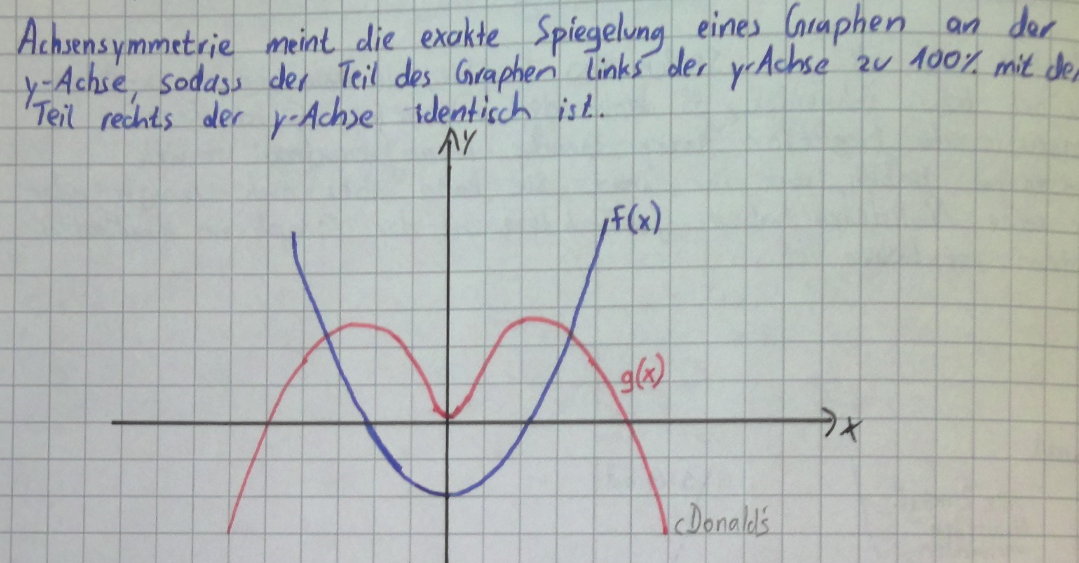 Achsensymmetrie meint die exakte Spiegelung eines Graphen an der
y-Achse, sodass der Teil des Graphen links der y-Achse zu 100% mit de
Teil rechts der y-Achse identisch ist.
y
f(x)
g(x)
x
cDonald's